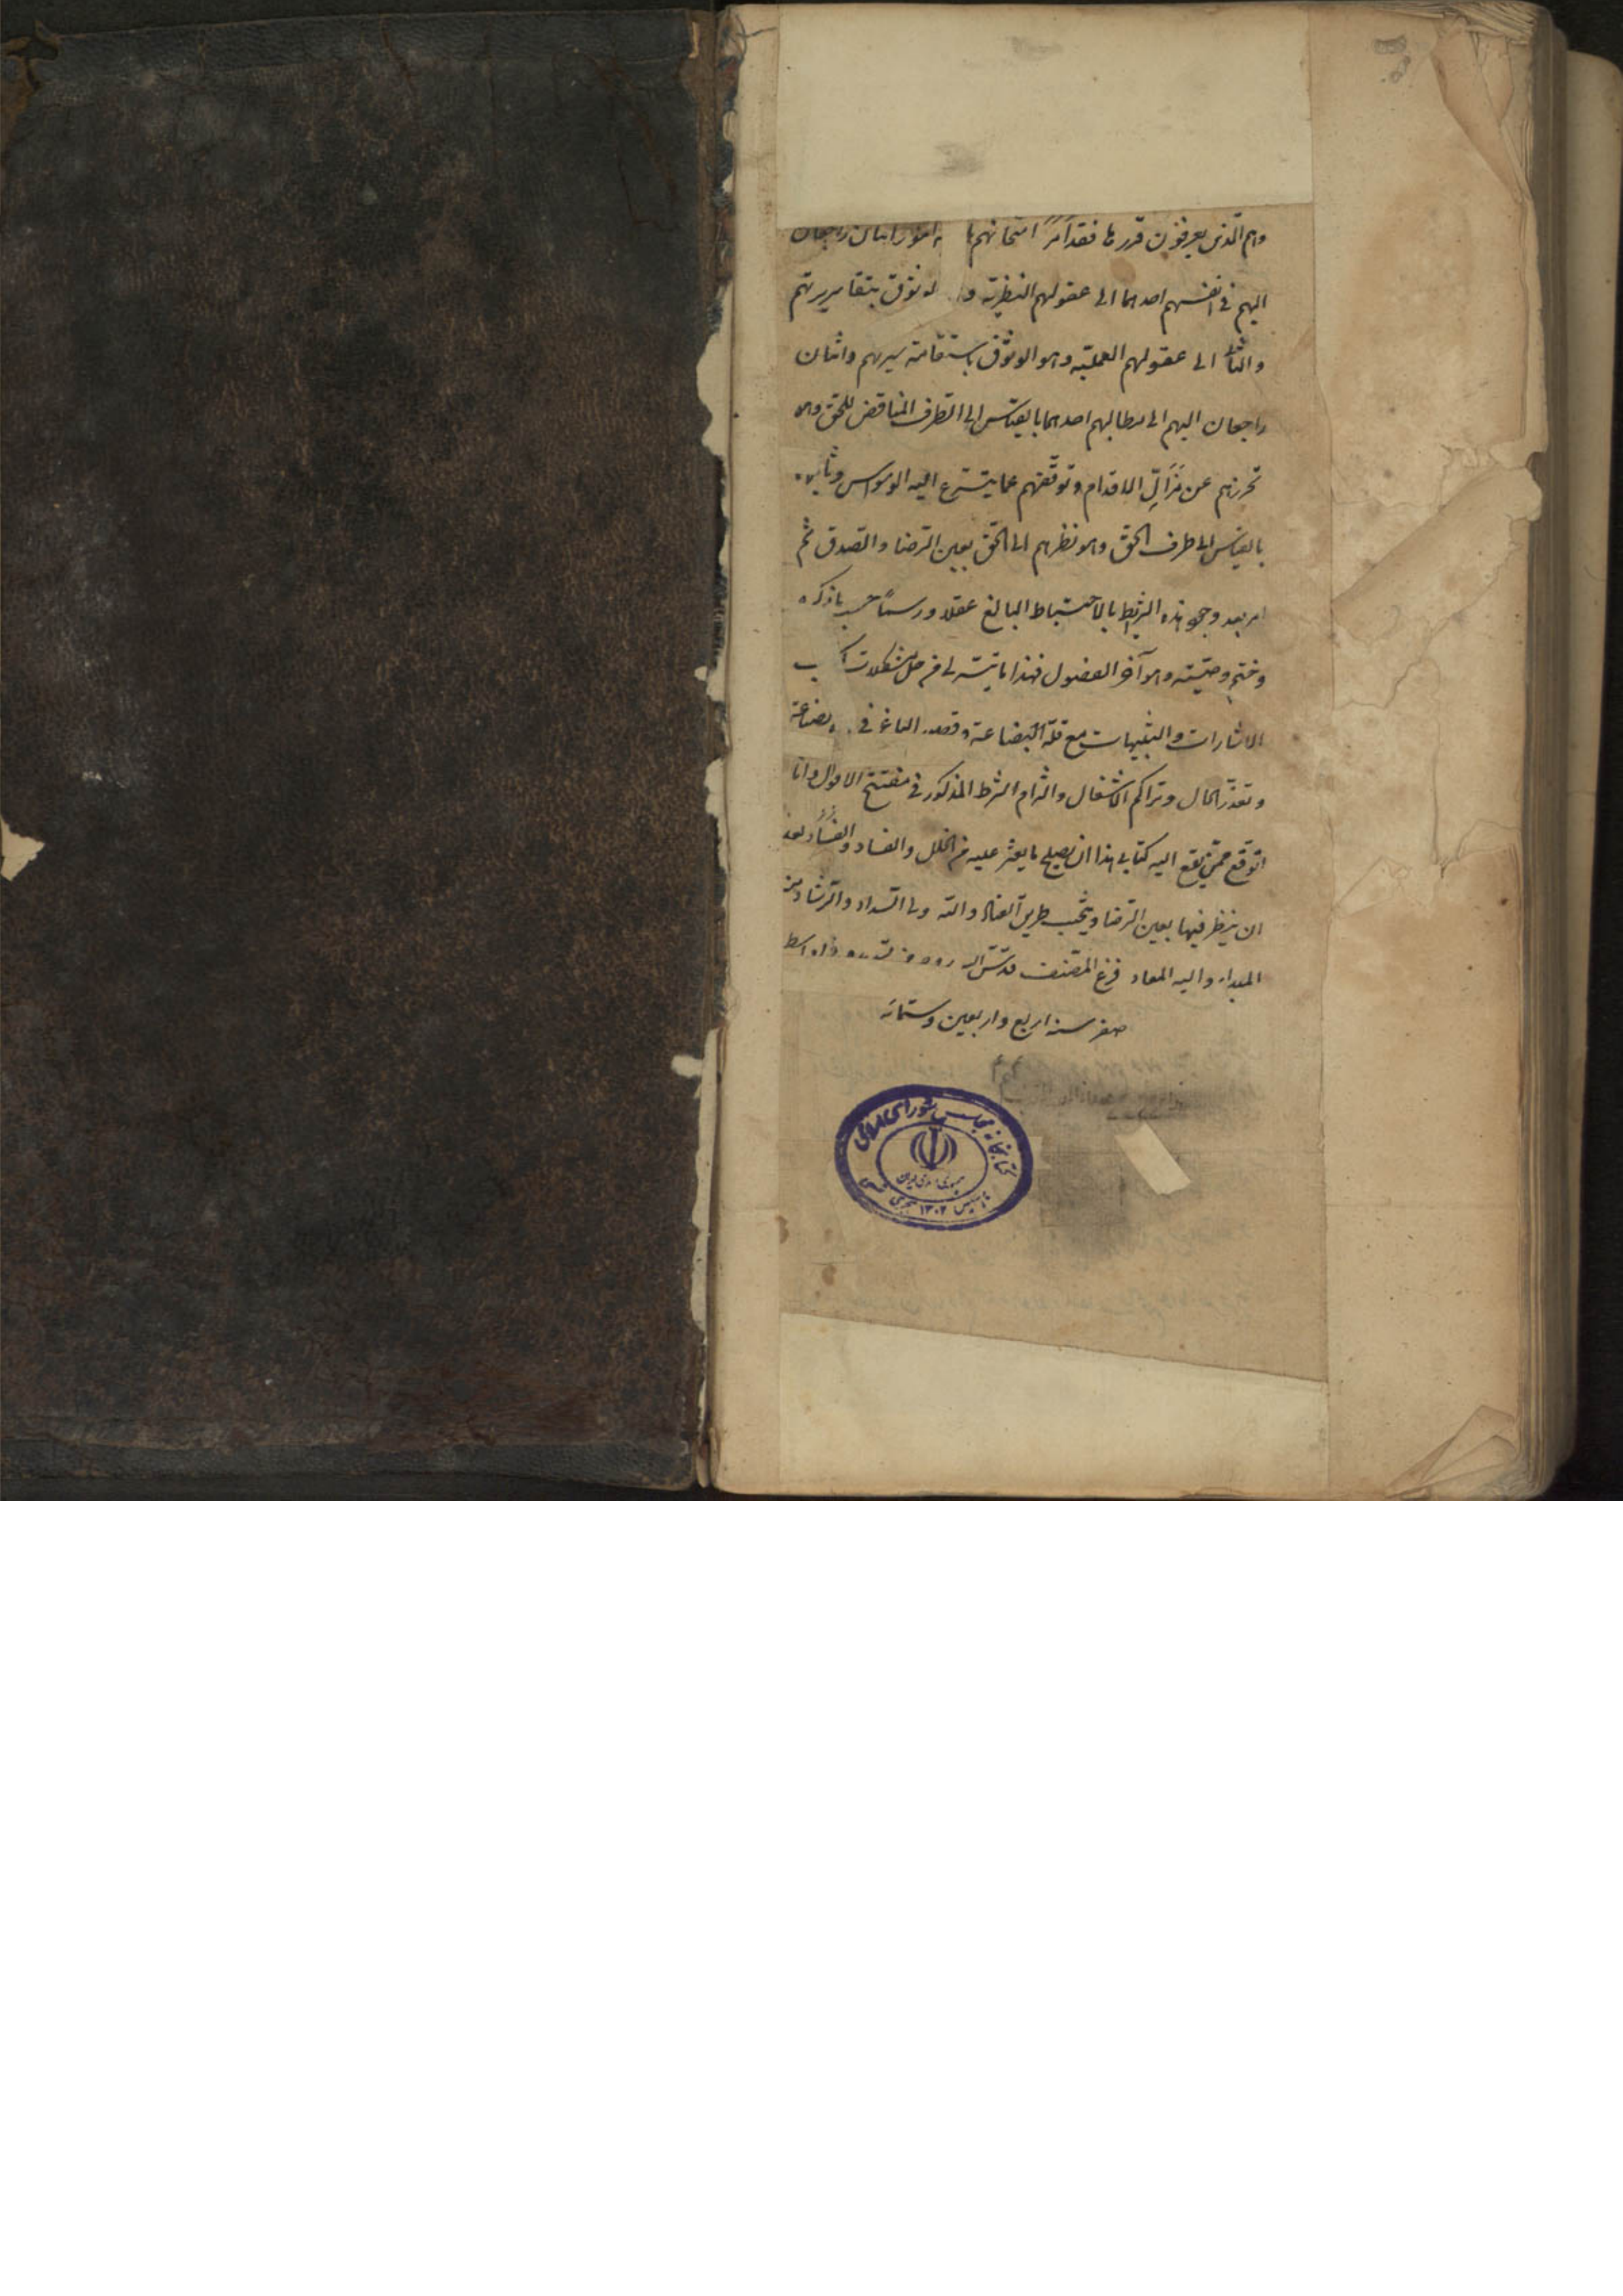 وهم الذين يعرفون قدرها فقد أمر امتحانهم بأمور اثنان راجعان
اليهم في انفسهم احدهما الى عقولهم النظرية و الوثوق بنقا سريرتهم
والثاني الى عقولهم العملية وهو الوثوق باستقامة سيرتهم واثنان
راجعان اليهم الى مطالبهم احدهما بالقياس الى الطرف المناقض للحق وهو
تحرزهم عن مزالّ الاقدام وتوقفهم عما يتسرع اليه الوسواس وثانيهما
بالقياس الى طرف الحق وهو نظرهم الى الحق بعين الرضا والصدق ثم
امر بعد وجود هذه الشرايط بالاحتياط البالغ عقلا ورسما حسب ما ذكره
وختم وصيته وهو آخر الفصول فهذا ما تيسر لي من حل مشكلات كتاب
الاشارات والتنبيهات مع قلة البضاعة و في الصناعة
وتعذر الحال وتراكم الاشغال والتزام الشرط المذكور في مفتتح الاقوال وانا
اتوقع ممن يقع اليه كتابي هذا ان يصلح ما يعثر عليه من الخلل والفساد بعد
ان ينظر فيها بعين الرضا ويتجنب طريق العناد والله ولي السداد والرشاد منه
المبداء واليه المعاد فرغ المصنف قدس الله اواسط
صفر سنه اربع واربعين وستمائه
كتابخانه مجلس شورای اسلامی
جمهوری اسلامی ایران
تاسیس ۱۳۰۲ هجری شمسی